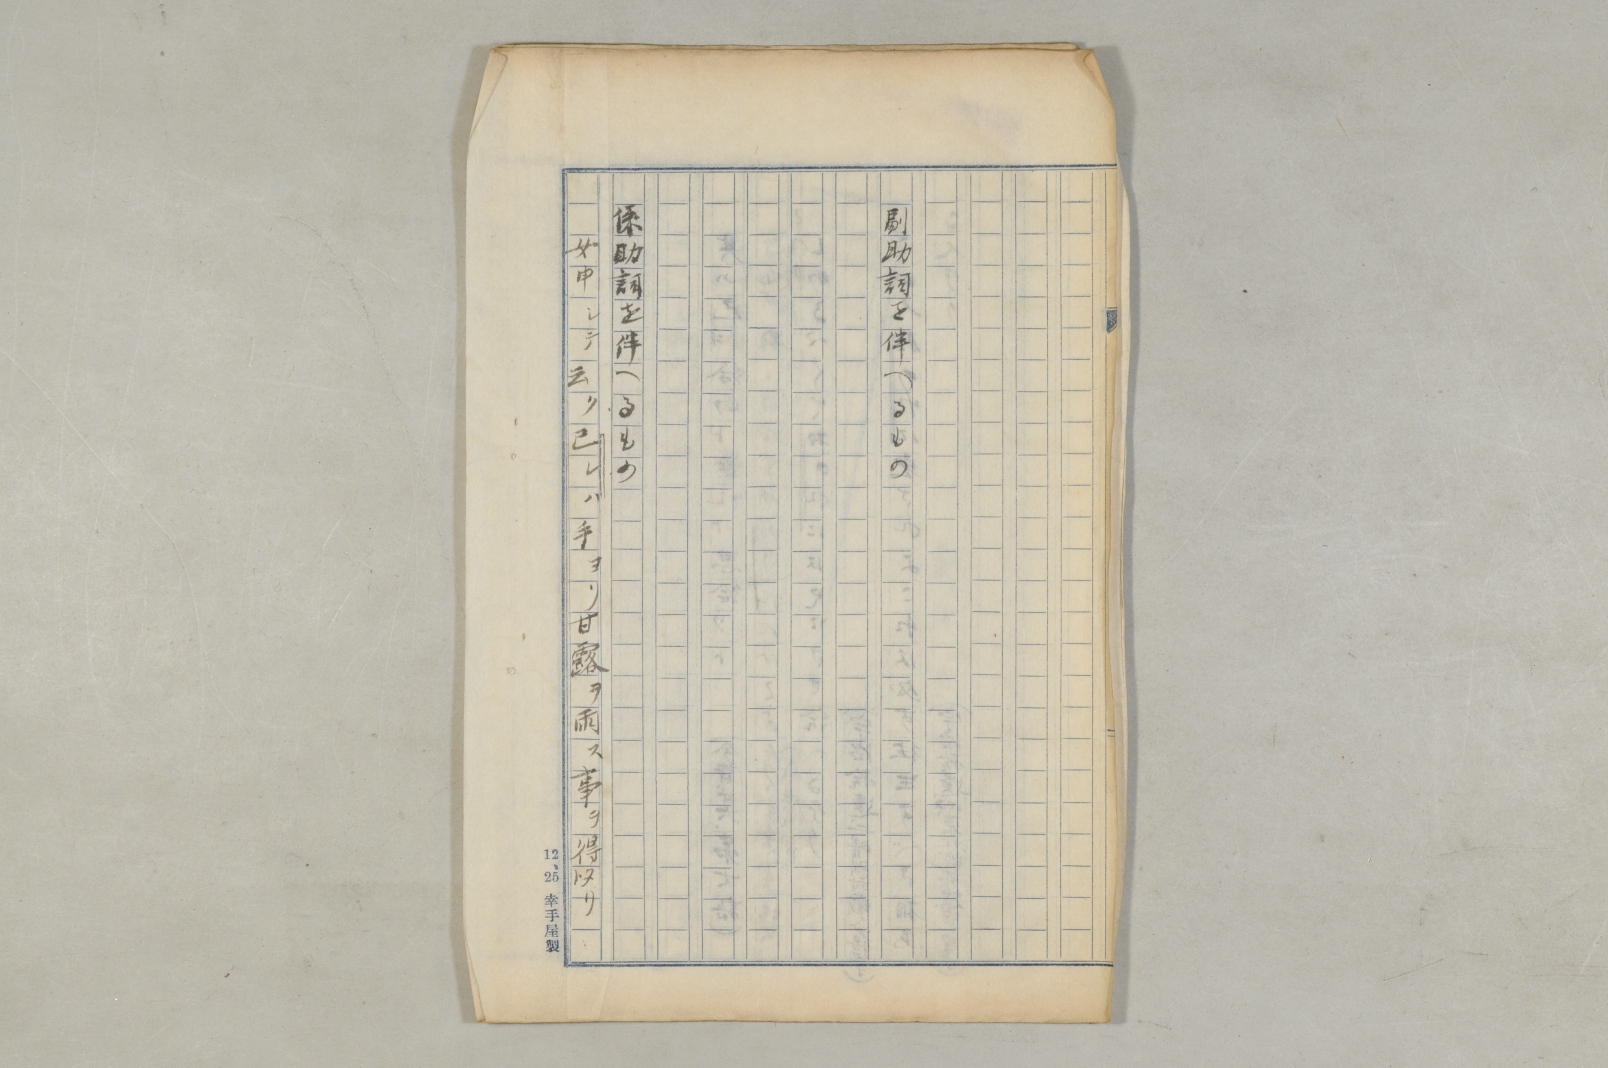 副助詞を伴へるもの
係助詞を伴へるもの
女申シテ云ク己レハ手ヨリ甘露ヲ雨ス事ヲ得タリ
12、25 幸手屋製